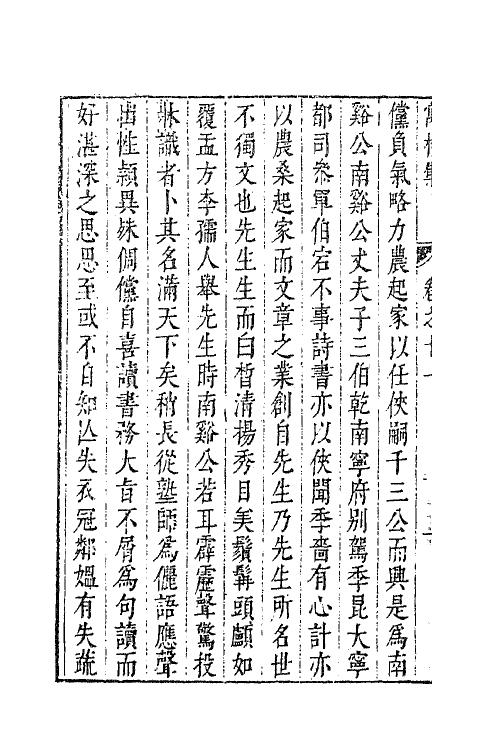 儻負氣略力農起家以任俠嗣千三公而興是爲南
谿公南谿公丈夫子三伯乾南寧府別駕季昆大寧
都司叅軍伯宕不事詩書亦以俠聞季嗇有心計亦
以農桑起家而文章之業創自先生乃先生所名世
不獨文也先生生而白皙清揚秀目美鬚髯頭顱如
覆盂方李孺人舉先生時南谿公若耳霹靂聲驚投
牀識者卜其名滿天下矣稍長從塾師爲儷語應聲
出性穎異殊倜儻自喜讀書務大旨不屑爲句讀而
好湛深之思思至或不自知亾失衣冠鄰媼有失蔬